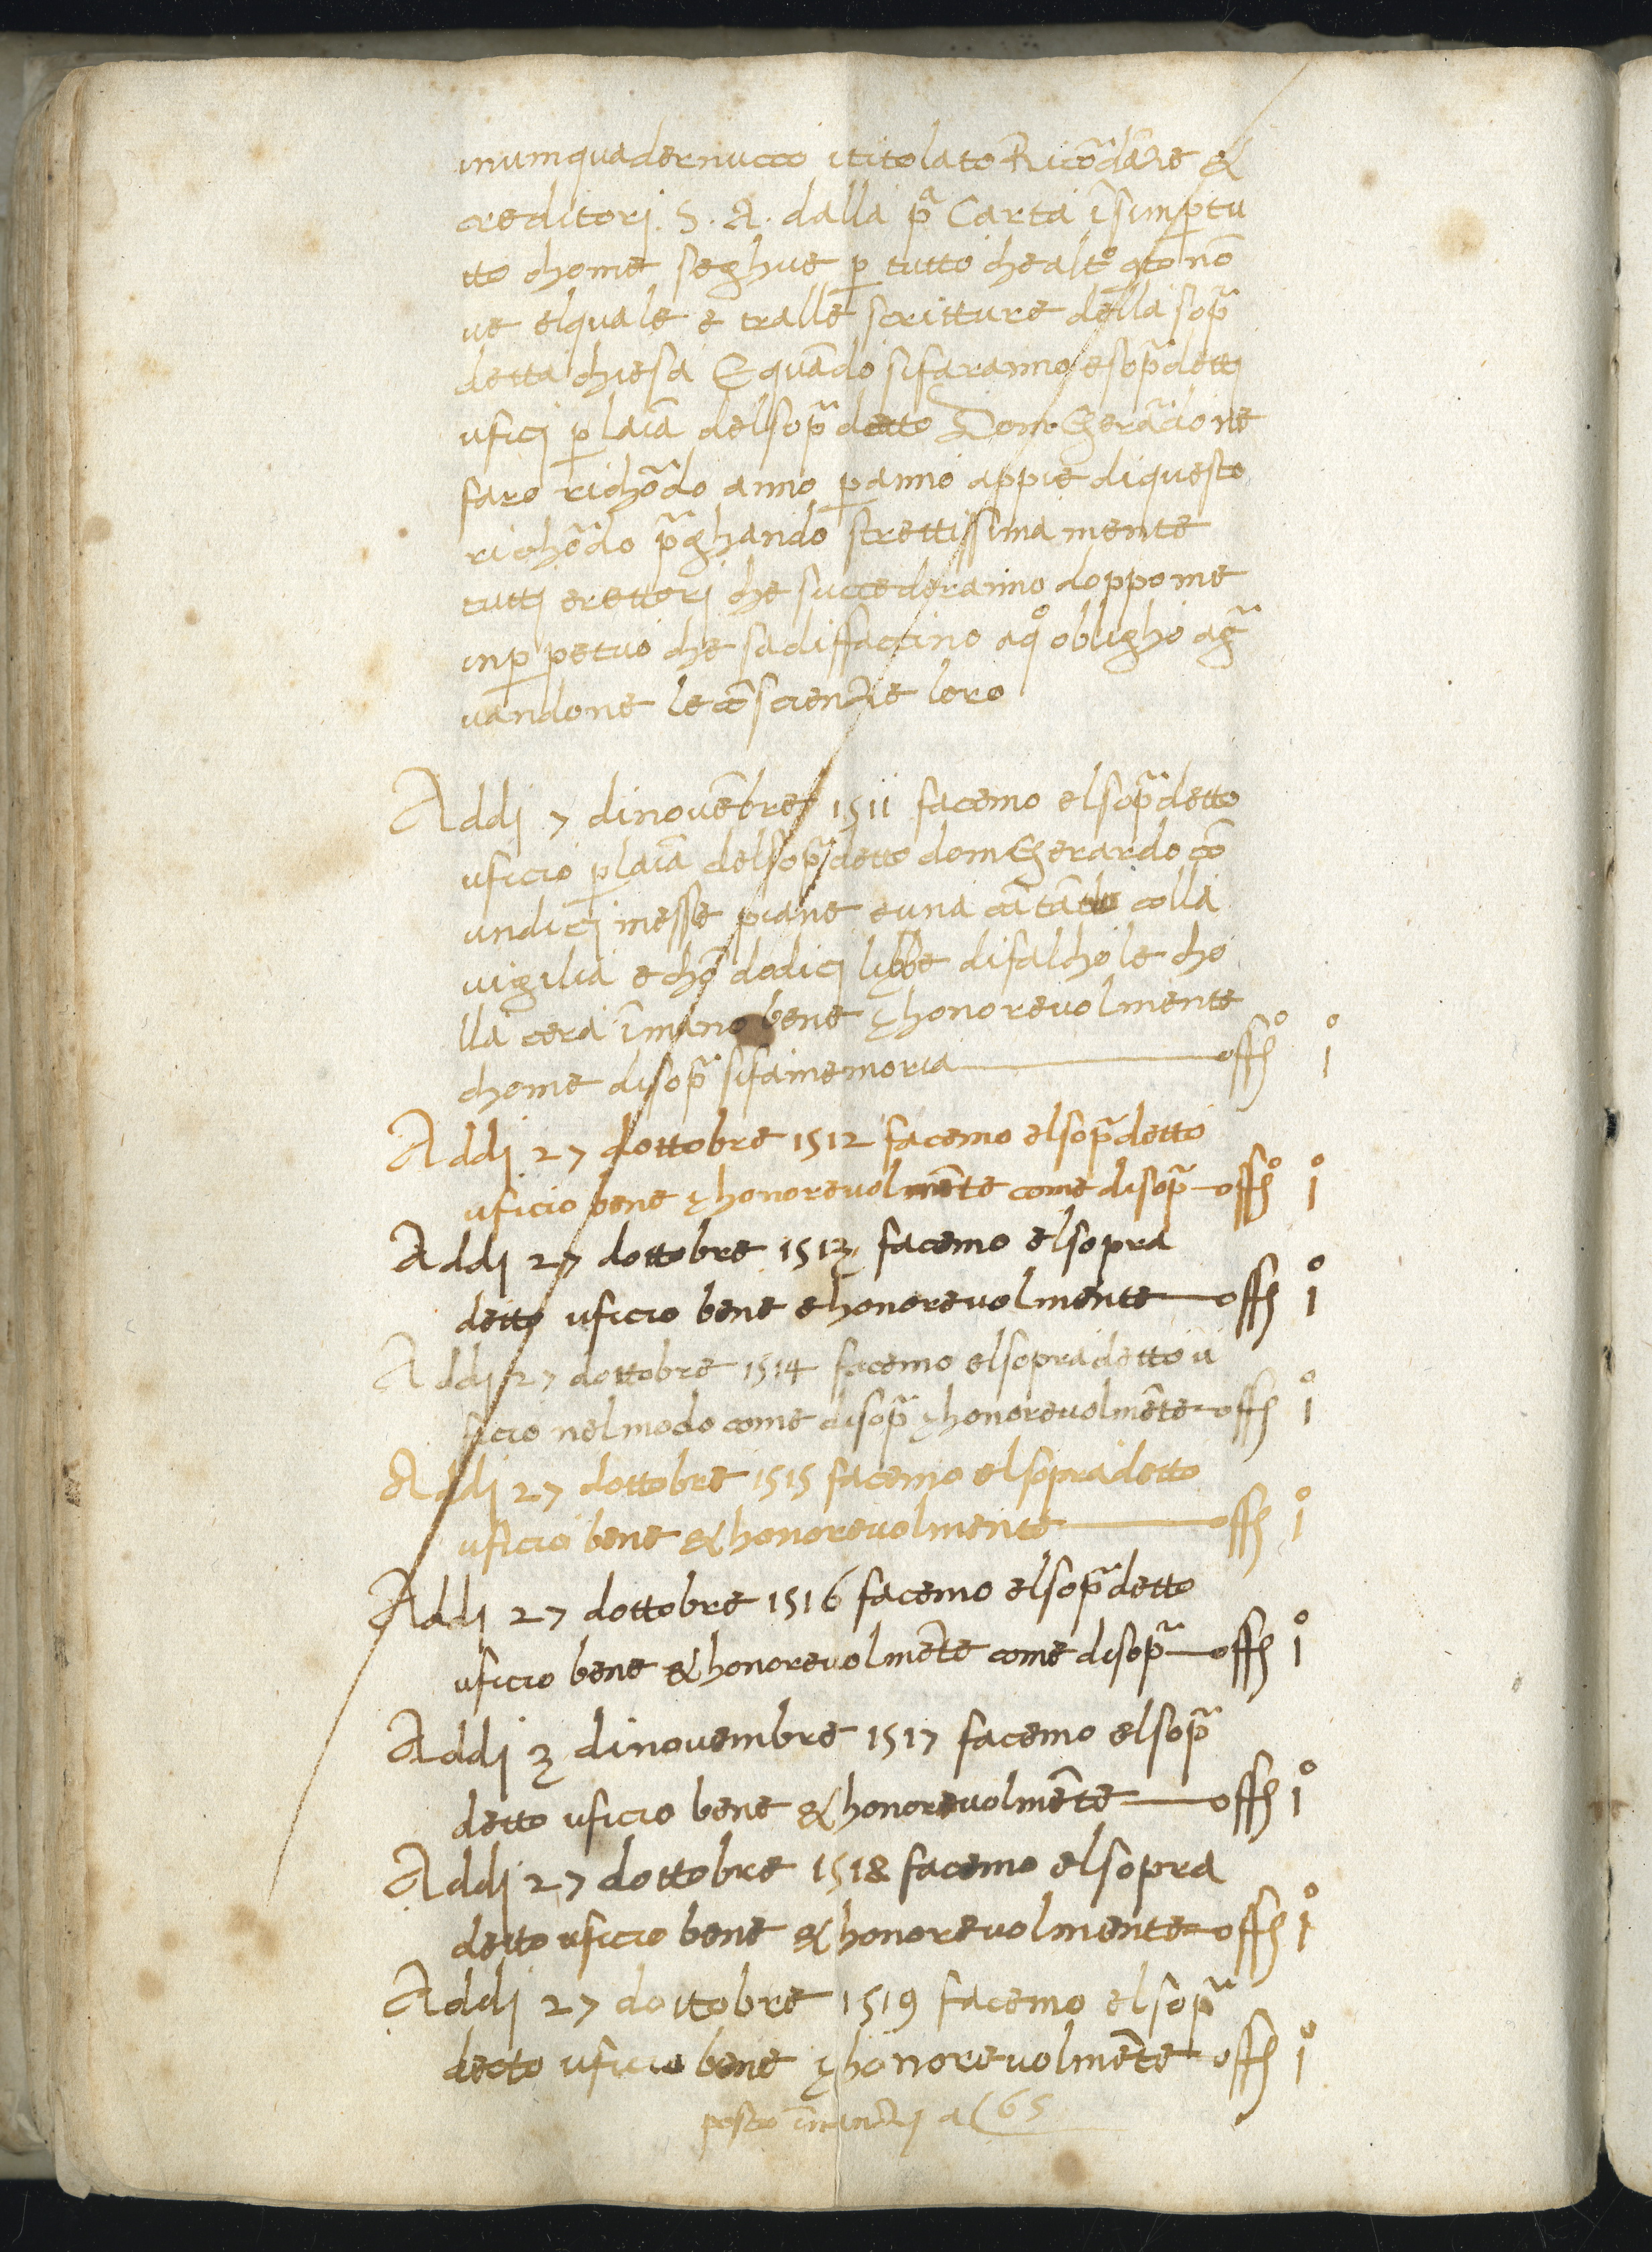 inumquadernucco ītitolato Ricōdāze &
creditorj. S. A. dalla p̄a Carta īsimp̱tu
tto chome seghue p̱ tutto chealt̊o q̄to nō
ve elquale e tralle scritture della sop̄a
detta chiesa E quādo sifaranno esop̄adettj
uficj p̱ laīa delsop̄a detto Dom Gerar̄do ne
faro richōdo anno p̱ anno appie diquesto
richōdo p̄aghando strettissima mente
tuttj erettorj che succederanno doppo me
inp̱petuo che sadiffaccino aq̊ oblígho aḡa
vandone le cōscienzie loro
Addj 7 dinovēbre 1511 facemo elsop̄adetto
uficio p̱ laīa delsop̄adetto dom Gerardo cō
undicj messe piane e una cātāta colla
vigilia e chō dodicj libbe difalchole cho
lla cera īmano bene & honorevolmente
chome disop̄a sifa memoria — offo̊ i̊
Addj 27 dottobre 1512 facemo elsop̄adetto
uficio bene & honorevolmēte come disop̄a — offo̊ i̊
Addj 27 dottobre 1513 facemo elsopra
detto uficio bene e honorevolmente — offo i̊
Addj 27 dottobre 1514 facemo elsopradetto u
ficio nelmodo come disop̄a & honorevolmēte offo i̊
Addj 27 dottobre 1515 facemo elsopradetto
uficio bene & honorevolmente — offo i̊
Addj 27 dottobre 1516 facemo elsop̄adetto
uficio bene & honorevolmēte come disop̄a — offo i̊
Addj 3 dinovembre 1517 facemo elsop̄a
detto uficio bene & honorevolmēte — offo i̊
Addj 27 dottobre 1518 facemo elsopra
detto uficio bene & honorevolmente offo i̊
Addj 27 dottobre 1519 facemo elsop̄a
decto uficio bene & honorevolmēte offo i̊
posto īnanzj a 65